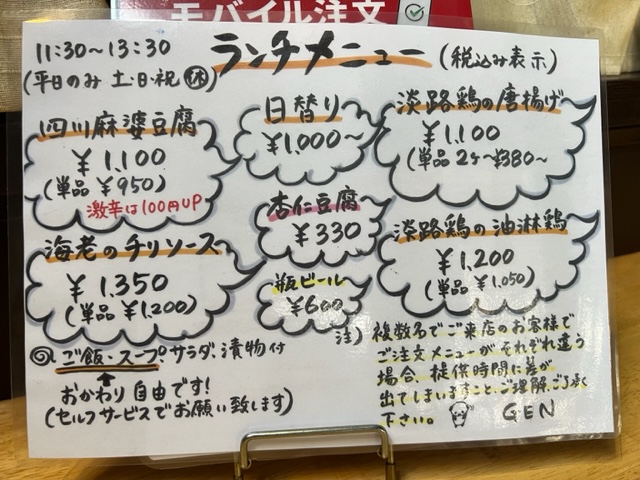 モバイル注文
11:30～13:30
(平日のみ 土・日・祝 休)
ランチメニュー (税込み表示)
四川麻婆豆腐
¥1,100
(単品 ¥950)
激辛は100円UP
日替り
¥1,000～
淡路鶏の唐揚げ
¥1,100
(単品 2ケ～¥380～
杏仁豆腐
¥330
海老のチリソース
¥1,350
(単品 ¥1,200)
瓶ビール
¥600
淡路鶏の油淋鶏
¥1,200
(単品 ¥1,050)
ご飯・スープ・サラダ・漬物付
おかわり自由です!
(セルフサービスでお願い致します)
注)
複数名でご来店のお客様で
ご注文メニューがそれぞれ違う
場合、提供時間に差が
出てしまいますこと、ご理解、ご了承
下さい。 GEN